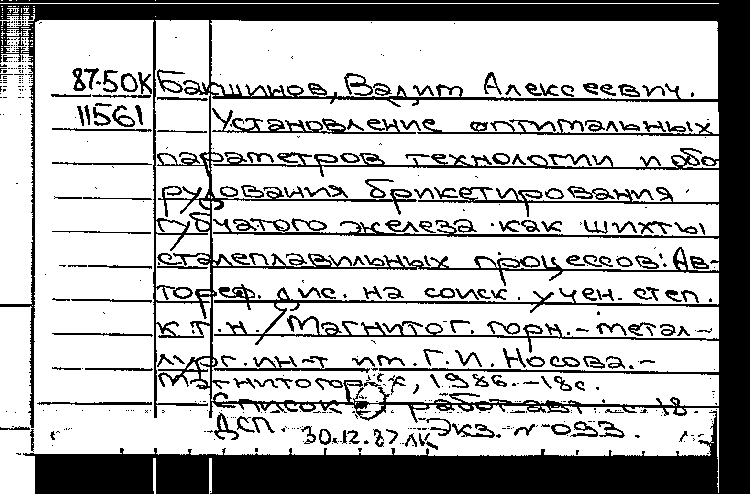 87-50К Бакшинов, Вадим Алексеевич.
11561 Установление оптимальных
параметров технологии и обо
рудования брикетирования
губчатого железа как шихты
сталеплавильных процессов: Ав-
тореф. дис. на соиск. учен. степ.
к.т.н. / Магнитог. горн.-метал-
лург. ин-т им. Г.И. Носова.-
Магнитогорск, 1986.-18с.
Список работ авт.: с. 18.
ДСП. 30.12.87 ЛК Экз. N 093.